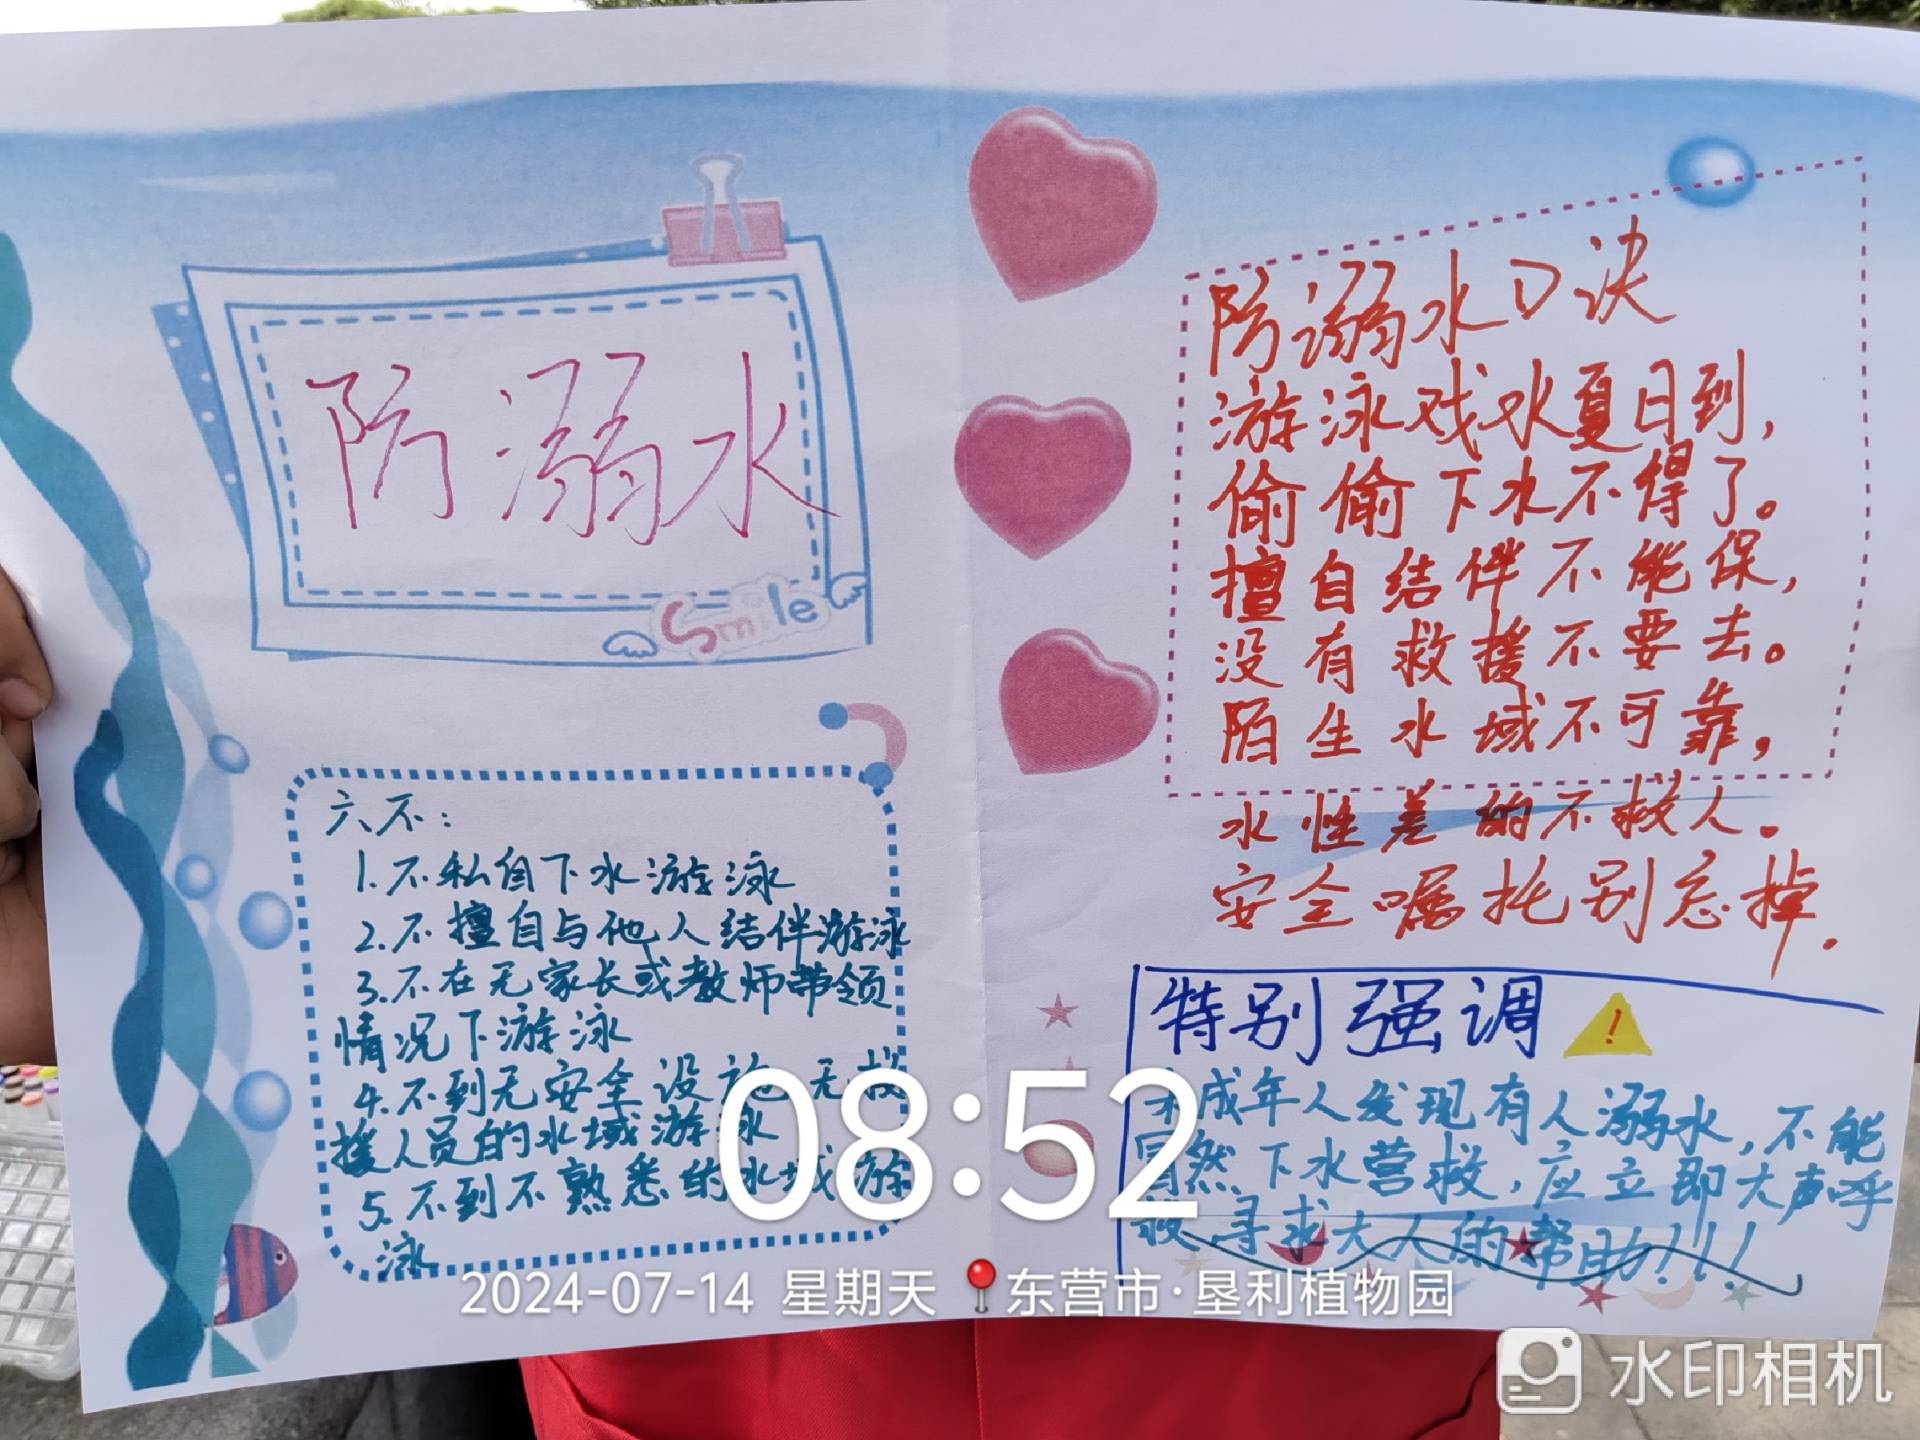 防溺水
Smile
六不：
1.不私自下水游泳
2.不擅自与他人结伴游泳
3.不在无家长或教师带领
情况下游泳
4.不到无安全设施、无救
援人员的水域游泳
5.不到不熟悉的水域游
泳
防溺水口诀
游泳戏水夏日到，
偷偷下水不得了。
擅自结伴不能保，
没有救援不要去。
陌生水域不可靠，
水性差的不救人。
安全嘱托别忘掉.
特别强调 !
未成年人发现有人溺水，不能
冒然下水营救，应立即大声呼
救寻求大人的帮助！！！
08:52
2024-07-14 星期天 东营市·垦利植物园
水印相机